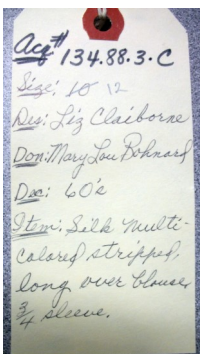 Acq# 134.88.3.C
Size: 10 12
Des: Liz Claiborne
Don: Mary Lou Bohnard
Dec: 60's
Item: Silk multi-
colored stripped,
long over blouse,
3/4 sleeve.